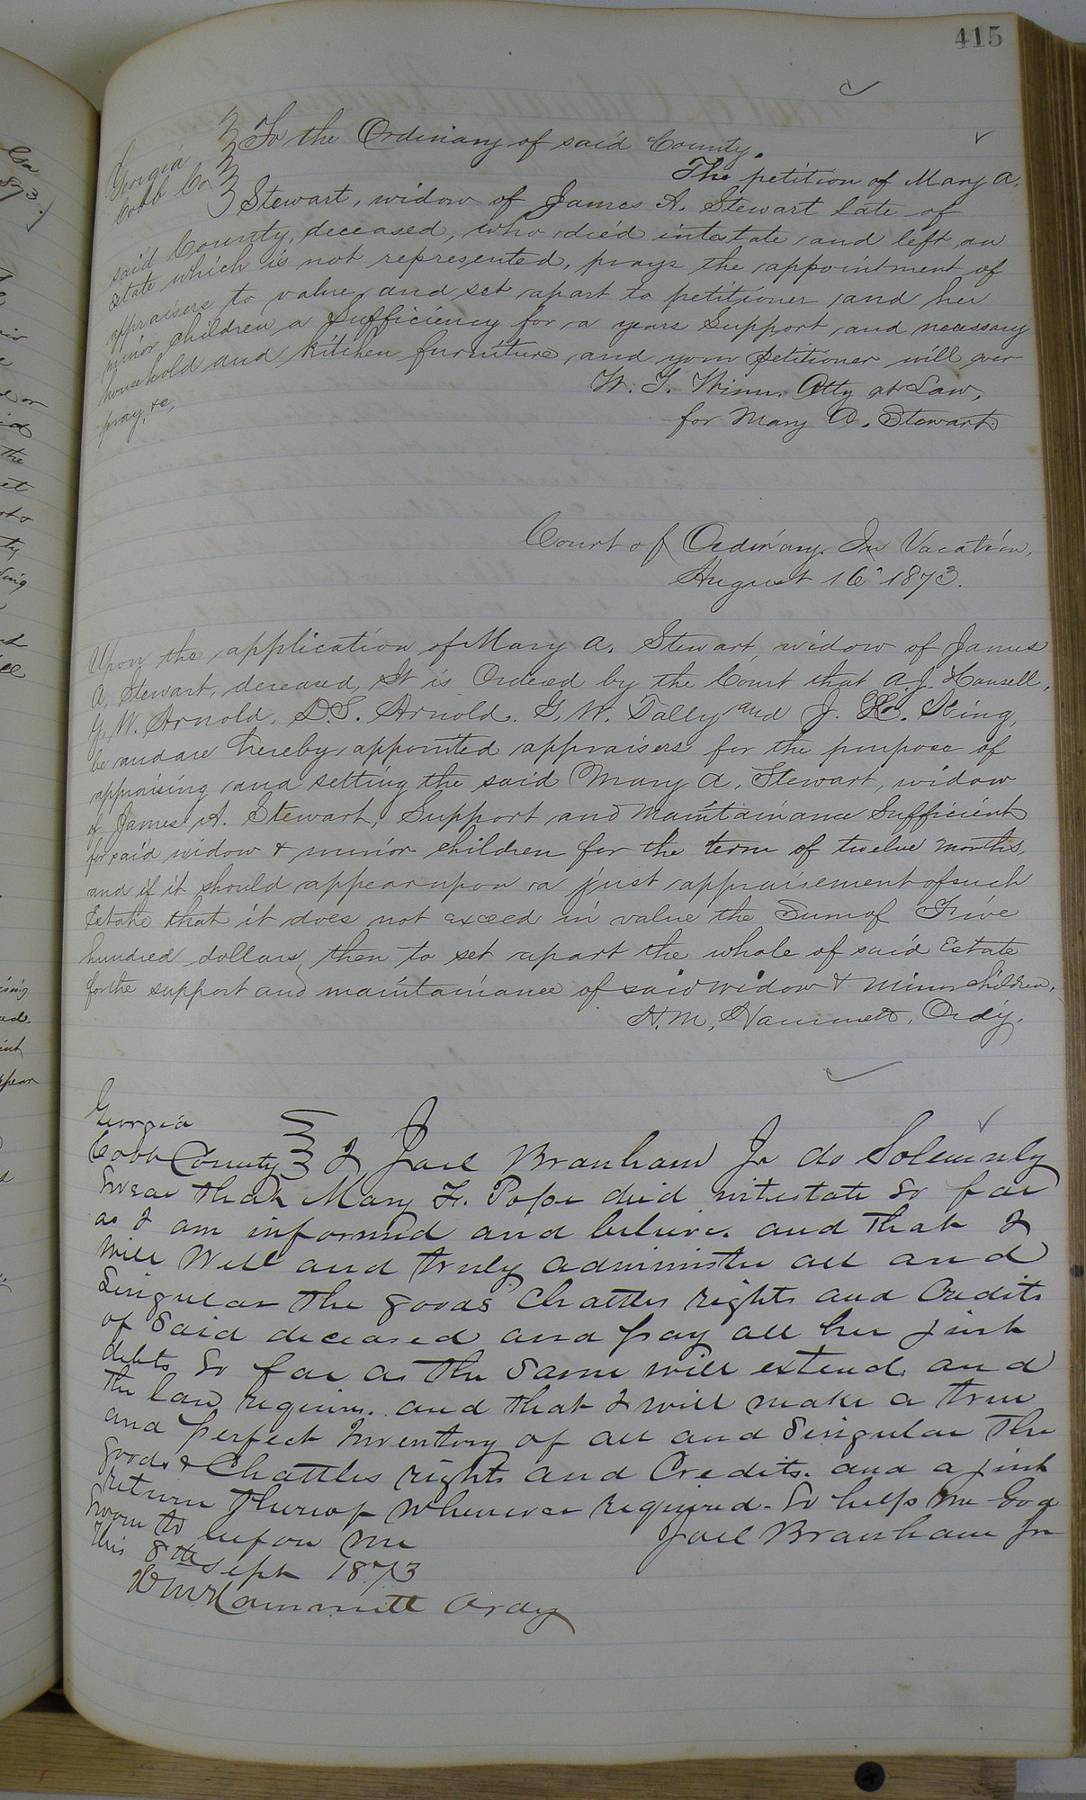 415
Georgia
Cobb Co
To the Ordinary of said County.
The petition of Mary A.
Stewart, widow of James A. Stewart late of
said County, deceased, who died intestate and left an
state which is not represented, prays the appointment of
appraisers to value, and set apart to petitioner and her
minor children a sufficiency for a years Support and necessary
household and kitchen furniture and your petitioner will ever
pray, &c,
W. T. Winn, Atty at Law,
for Mary A. Stewart.
Court of Ordinary In Vacation,
August 16" 1873.
Upon the application of Mary A. Stewart, widow of James
A. Stewart, deceased, It is Ordered by the Court that A.J. Hansell,
G. W. Arnold, D.S. Arnold, G. W. Dally and J. H. King,
be and are hereby appointed appraisers for the purpose of
appraising and setting the said Mary A. Stewart, widow
of James A. Stewart, Support and Maintainance Sufficient
for said widow & minor children for the term of twelve months,
and if it should appear upon a just appraisement of such
Estate that it does not exceed in value the Sum of Five
hundred dollars, then to set apart the whole of said Estate
for the support and maintainance of said widow & minor children.
H. M. Hammett, Ordy.
Georgia
Cobb County I Joel Branham Jr do Solemnly
Swear that Mary F. Pope died intestate so far
as I am informed and believe. and that I
will Well and truly administer all and
Singular the goods Chattles rights and Credits
of Said deceased and pay all her just
debts So far as the Same will extend and
the law requires. and that I will make a true
and perfect Inventory of all and Singular the
goods & Chattles rights and Credits. and a just
return thereof Whenever required. So help me God
Sworn to before me Joel Branham Jr
This 8th Sept 1873
H M Hammett Ordy